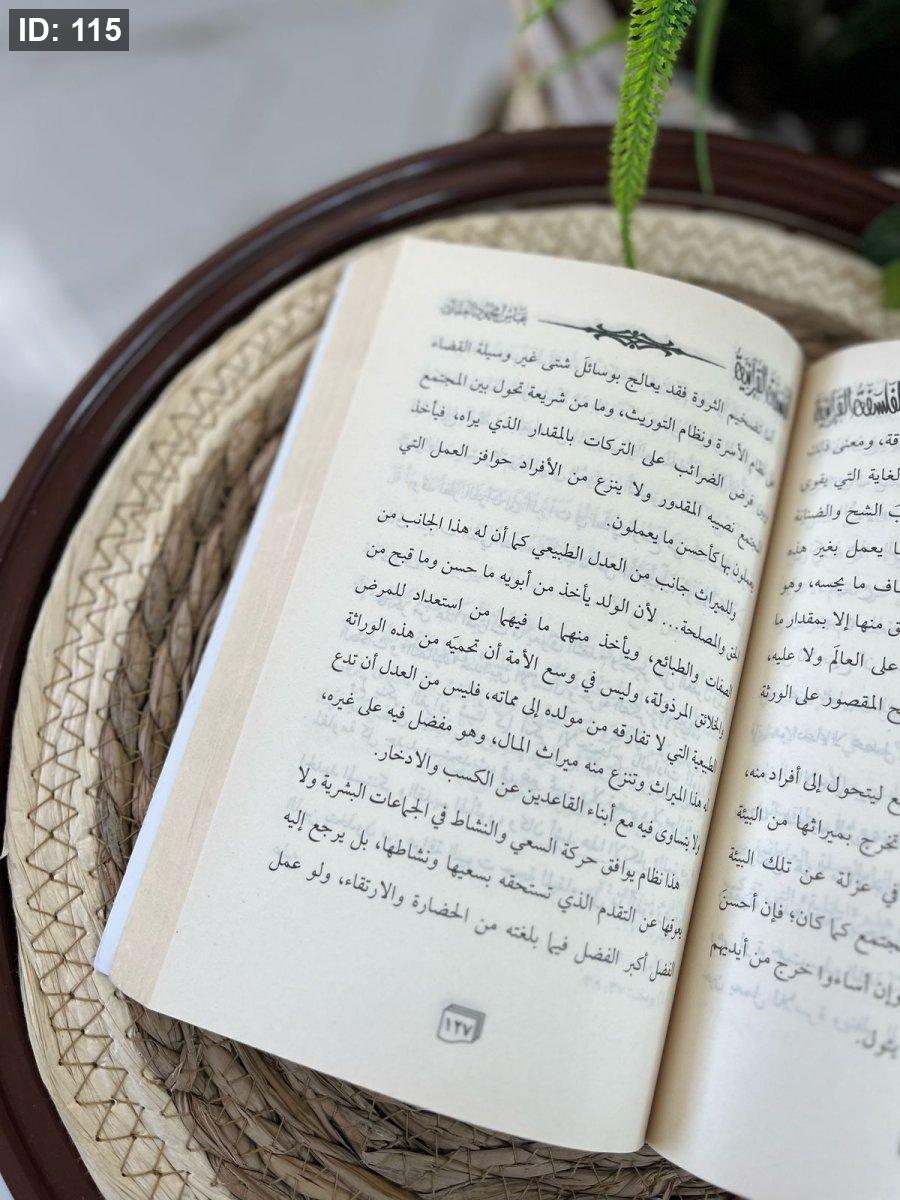 ID: 115
الفلسفة القرآنية
عباس محمود العقاد
أما تضخيم الثروة فقد يعالج بوسائلَ شتى غير وسيلة القضاء
على نظام الأسرة ونظام التوريث، وما من شريعة تحول بين المجتمع
ودون فرض الضرائب على التركات بالمقدار الذي يراه، فيأخذ
المجتمع نصيبه المقدور ولا ينزع من الأفراد حوافز العمل التي
يعملون بها كأحسن ما يعملون.
وللميراث جانب من العدل الطبيعي كما أن له هذا الجانب من
الحق والمصلحة... لأن الولد يأخذ من أبويه ما حسن وما قبح من
الصفات والطبائع، ويأخذ منهما ما فيهما من استعداد للمرض
والخلائق المرذولة، وليس في وسع الأمة أن تحميَه من هذه الوراثة
الطبيعية التي لا تفارقه من مولده إلى مماته، فليس من العدل أن تدع
له هذا الميراث وتنزع منه ميراث المال، وهو مفضل فيه على غيره،
ولا يتساوى فيه مع أبناء القاعدين عن الكسب والادخار.
هذا نظام يوافق حركة السعي والنشاط في الجماعات البشرية ولا
يعوقها عن التقدم الذي تستحقه بسعيها ونشاطها، بل يرجع إليه
الفضل أكبر الفضل فيما بلغته من الحضارة والارتقاء، ولو عمل
١٢٧
الفلسفة القرآنية
ومعنى ذلك
لغاية التي يقوى
الشح والضنانة
يعمل بغير هذه
ما يحسه، وهو
منها إلا بمقدار ما
على العالَم ولا عليه،
المقصور على الورثة
ليتحول إلى أفراد منه،
تخرج بميراثها من البيئة
في عزلة عن تلك البيئة
كما كان؛ فإن أحسنَ
وإن أساءوا خرج من أيديهم
يئول.